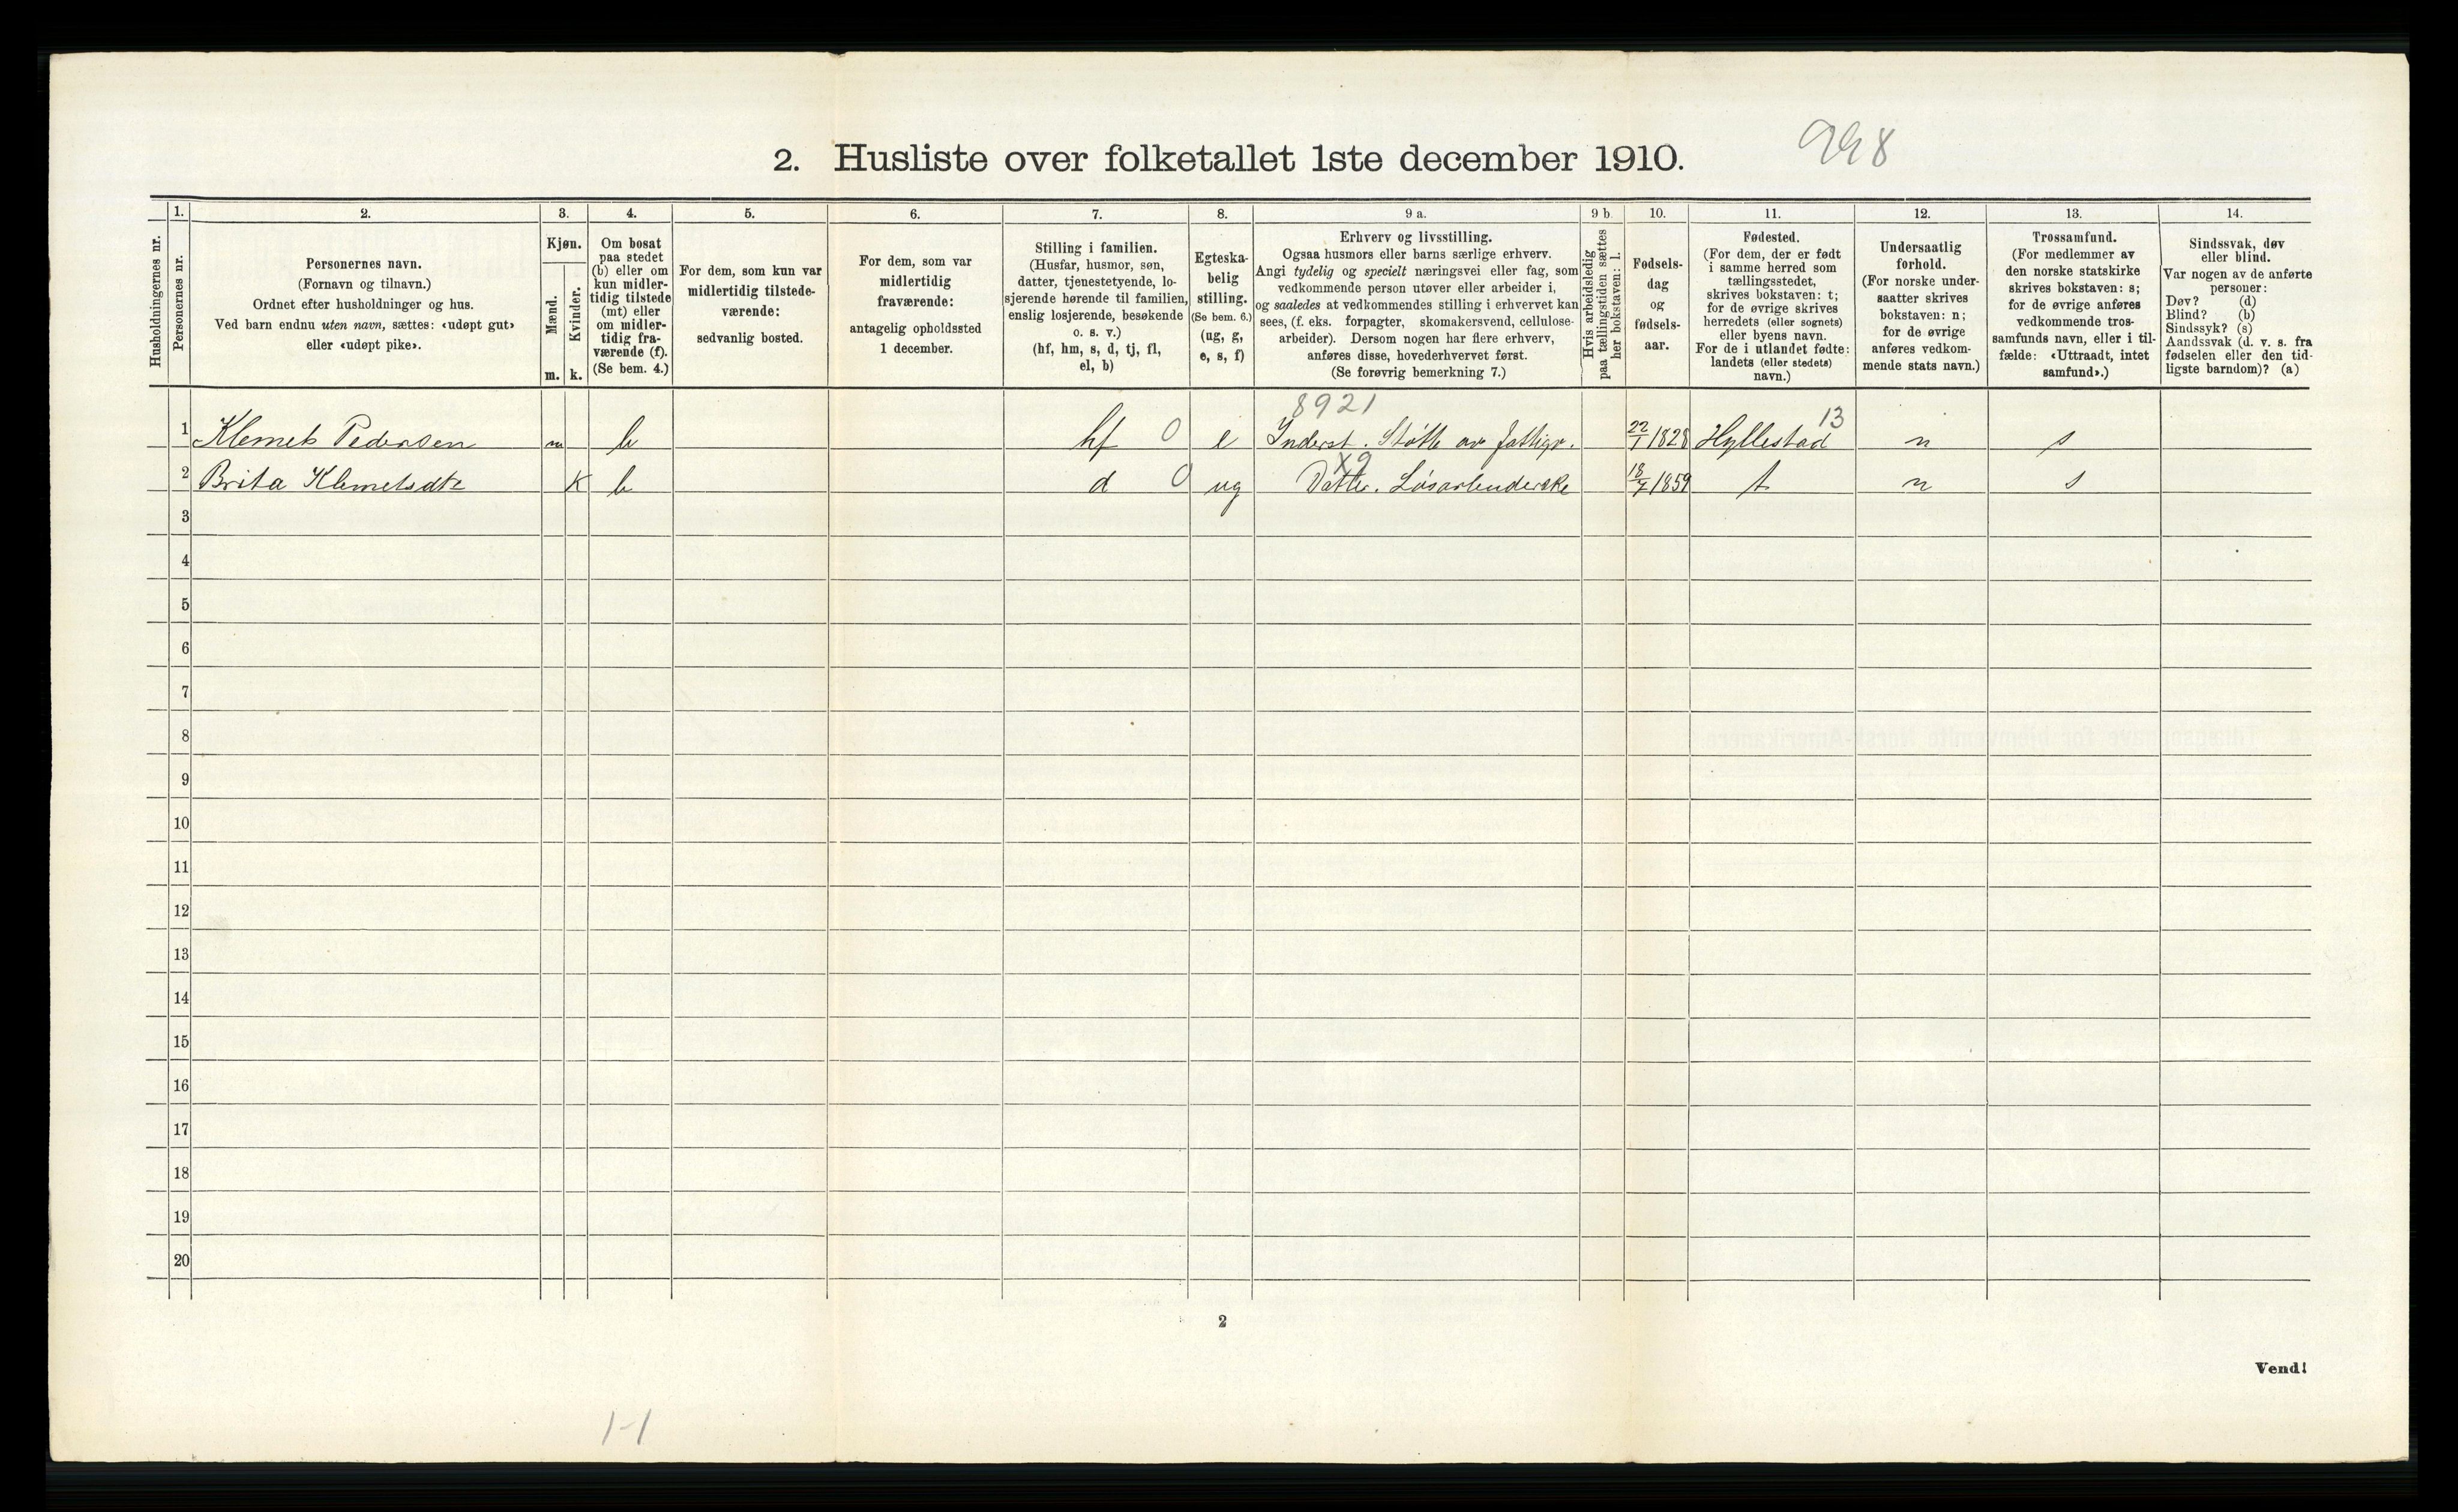 2. Husliste over folketallet 1ste december 1910.
998
1. 2. 3. 4. 5. 6. 7. 8. 9 a. 9 b. 10. 11. 12. 13. 14.
Husholdningernes nr.
Personernes nr.
Personernes navn.
(Fornavn og tilnavn.)
Ordnet efter husholdninger og hus.
Ved barn endnu uten navn, sættes: «udøpt gut»
eller «udøpt pike».
Kjøn.
Mænd.
Kvinder.
m. k.
Om bosat
paa stedet
(b) eller om
kun midler-
tidig tilstede
(mt) eller
om midler-
tidig fra-
værende (f).
(Se bem. 4.)
For dem, som kun var
midlertidig tilstede-
værende:
sedvanlig bosted.
For dem, som var
midlertidig
fraværende:
antagelig opholdssted
1 december.
Stilling i familien.
(Husfar, husmor, søn,
datter, tjenestetyende, lo-
sjerende hørende til familien,
enslig losjerende, besøkende
o. s. v.)
(hf, hm, s, d, tj, fl,
el, b)
Egteska-
belig
stilling.
(Se bem. 6.)
(ug, g,
e, s, f)
Erhverv og livsstilling.
Ogsaa husmors eller barns særlige erhverv.
Angi tydelig og specielt næringsvei eller fag, som
vedkommende person utøver eller arbeider i,
og saaledes at vedkommendes stilling i erhvervet kan
sees, (f. eks. forpagter, skomakersvend, cellulose-
arbeider). Dersom nogen har flere erhverv,
anføres disse, hovederhvervet først.
(Se forøvrig bemerkning 7.)
Hvis arbeidsledig
paa tællingstiden sættes
her bokstaven: l.
Fødsels-
dag
og
fødsels-
aar.
Fødested.
(For dem, der er født
i samme herred som
tællingsstedet,
skrives bokstaven: t;
for de øvrige skrives
herredets (eller sognets)
eller byens navn.
For de i utlandet fødte:
landets (eller stedets)
navn.)
Undersaatlig
forhold.
(For norske under-
saatter skrives
bokstaven: n;
for de øvrige
anføres vedkom-
mende stats navn.)
Trossamfund.
(For medlemmer av
den norske statskirke
skrives bokstaven: s;
for de øvrige anføres
vedkommende tros-
samfunds navn, eller i til-
fælde: «Uttraadt, intet
samfund».)
Sindssvak, døv
eller blind.
Var nogen av de anførte
personer:
Døv? (d)
Blind? (b)
Sindssyk? (s)
Aandssvak (d. v. s. fra
fødselen eller den tid-
ligste barndom)? (a)
8921 13
1 Klemet Pedersen m b hf 0 e Inderst. Støtte av fattigv. 22/1 1828 Hyllestad n s
X9
2 Brita Klemetsdtr k b d 0 ug Datter. Løsarbeiderske 18/7 1859 t n s
3
4
5
6
7
8
9
10
11
12
13
14
15
16
17
18
19
20
2
Vend!
1-1